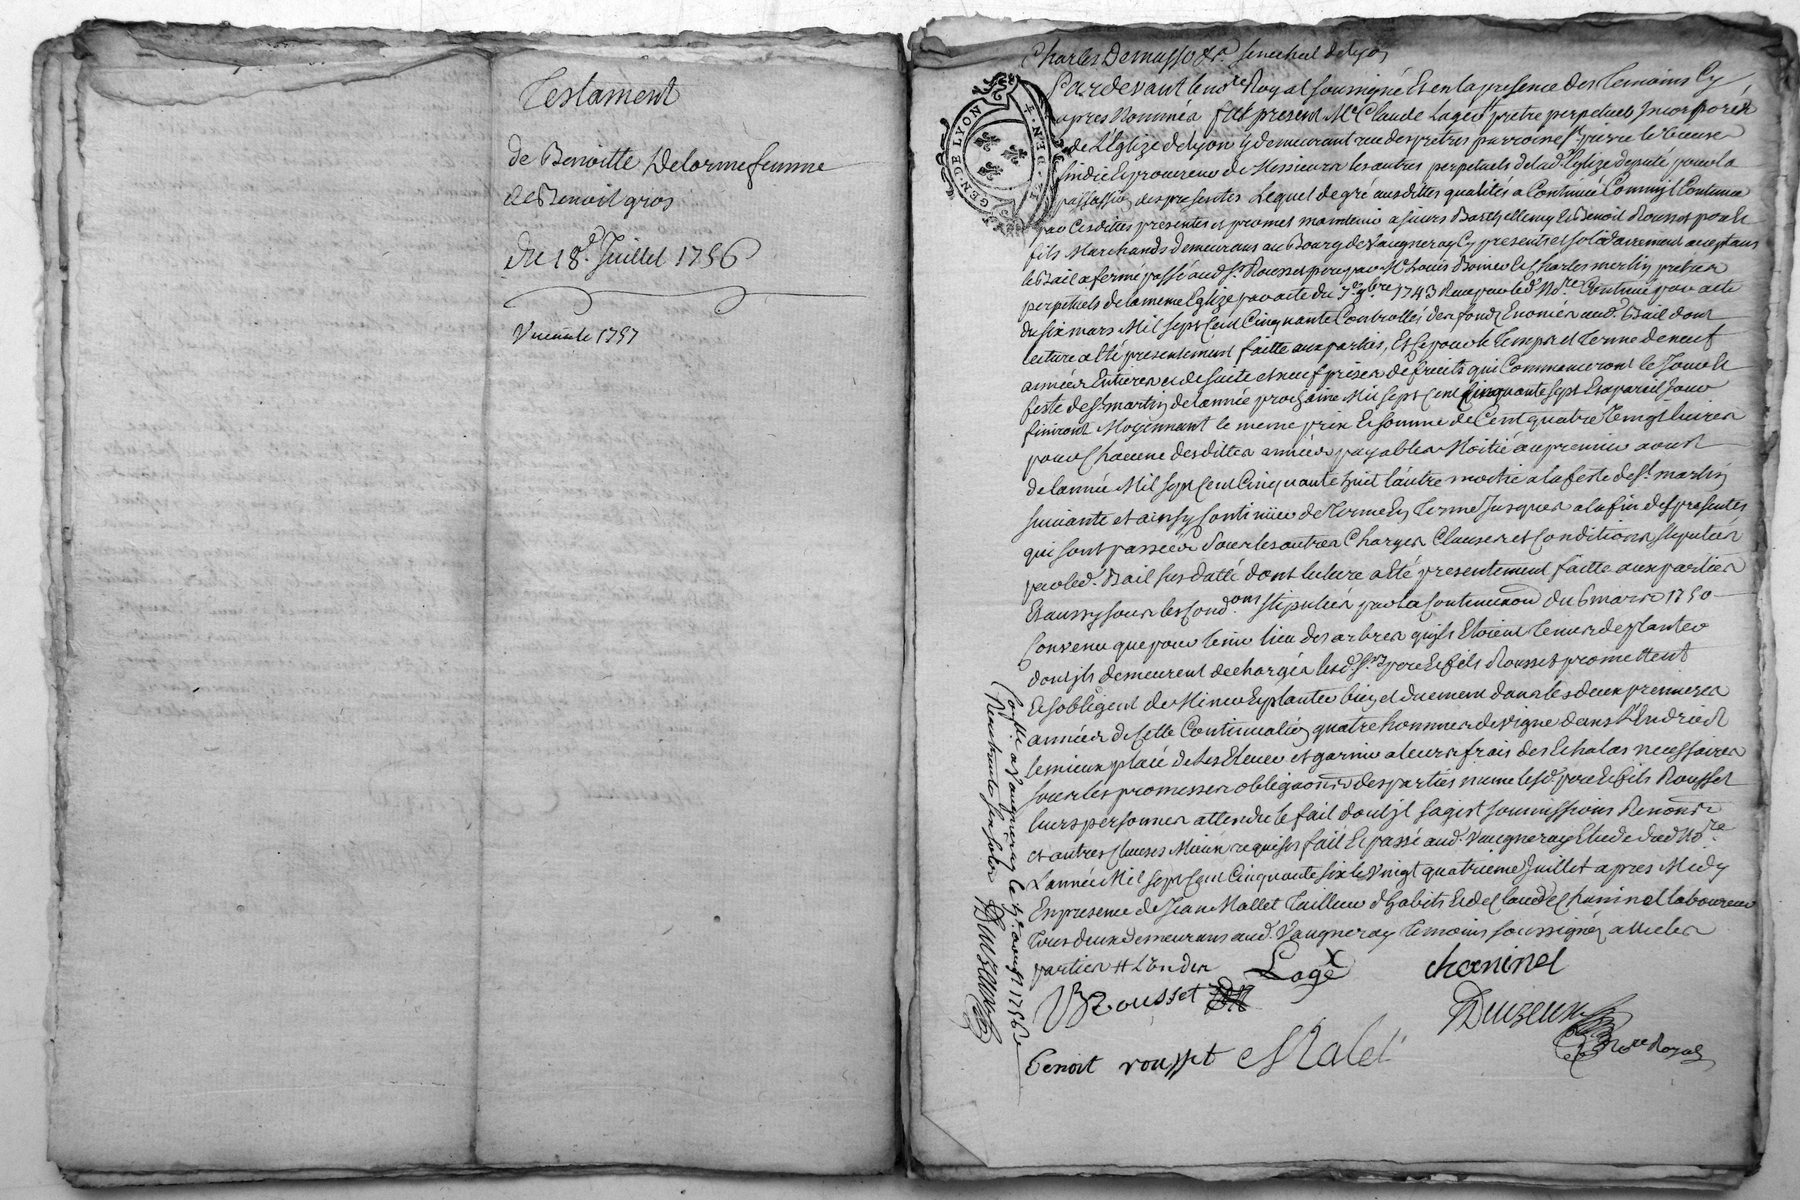 Testament
de Benoitte Delorme femme
de Benoit gros
du 18e Juillet 1756
Vacante 1757
Charles Demasso &a. senechal de Lyon
GEN. DE LYON
Pardevant le nore Royal soussigné Et en la presence des Temoins Cy
apres Nommés fut present Me Claude Lage pretre perpetuel Incorporé
de L'Eglize de Lyon y demeurant rue des pretres parroisse St pierre le vieux
sindic Et procureur de Messieurs les autres perpetuels de lad. Eglize deputé pour la
passation des presentes Lequel de gré ausdittes qualités a Continué Comme jl Continue
par Cesdittes presentes et promet maintenir a sieurs Barthellemy et Benoit Rousset pere et
fils Marchands demeurans au Bourg de Vaugneray Cy presents et solidairement acceptans
le Bail a ferme passé aud. Sr. Rousset pere par Me Louis Boiner et Charles merlin pretres
perpetuels de la meme Eglize par acte du 7bre 1743 Recu par led. Nore Continué par acte
du six mars Mil sept Cent Cinquante Controllés des fonds Enoncés aud. Bail dont
lecture a Eté presentement faitte aux parties, Et ce pour le temps et terme de neuf
années Entieres et de suitte et neuf prises de fruits qui Commanceront le Jour et
feste de St martin de l'année prochaine Mil sept Cent Cinquante sept Et a pareil Jour
finiront Moyennant le meme prix Et somme de Cent quatre Vingt livres
pour Chacune desdittes années payables Moitié au premier aoust
de l'année Mil sept Cent Cinquante huit l'autre moitié a la feste de St. martin
suivante et ainsy Continuer de Terme En Terme Jusques a la fin des presentes
qui sont passées sous les autres Charges Clauses et Conditions stipulées
par led. Bail sus datté dont lecture a Eté presentement faitte aux parties
Et aussy sous les Condons stipulées par la Continuaon du 6 mars 1750
Convenu que pour tenir lieu des arbres quils Etoient Tenus de planter
dont jls demeurent dechargés lesd. Srs pere Et fils Rousset promettent
Et sobligent de Miner Et planter bien et duement dans les deux premieres
années de Cette Continuation quatre hommes de vigne dans L'Endroit
le mieux placé de les Elever et garnir a leurs frais des Echalas necessaires
sous les promesses obligaons des parties meme lesd. pere Et fils Rousset
leurs personnes attendu le fait dont jl sagist soumissions Renonons
et autres Clauses Mieux requises fait Et passé aud. Vaugneray Etude dud. Nore
L'année Mil sept Cent Cinquante six le Vingt quatrieme Juillet apres Midy
En presence de Jean Mallet Tailleur d'habits Et de Claude Chaninel laboureur
tous deux demeurans aud. Vaugneray temoins soussignés avec les
parties
Lage
chaninel
B Rousset
Benoit rousset
Malet
nore Royal
Conllé a Vaugneray le 4e. aoust 1756